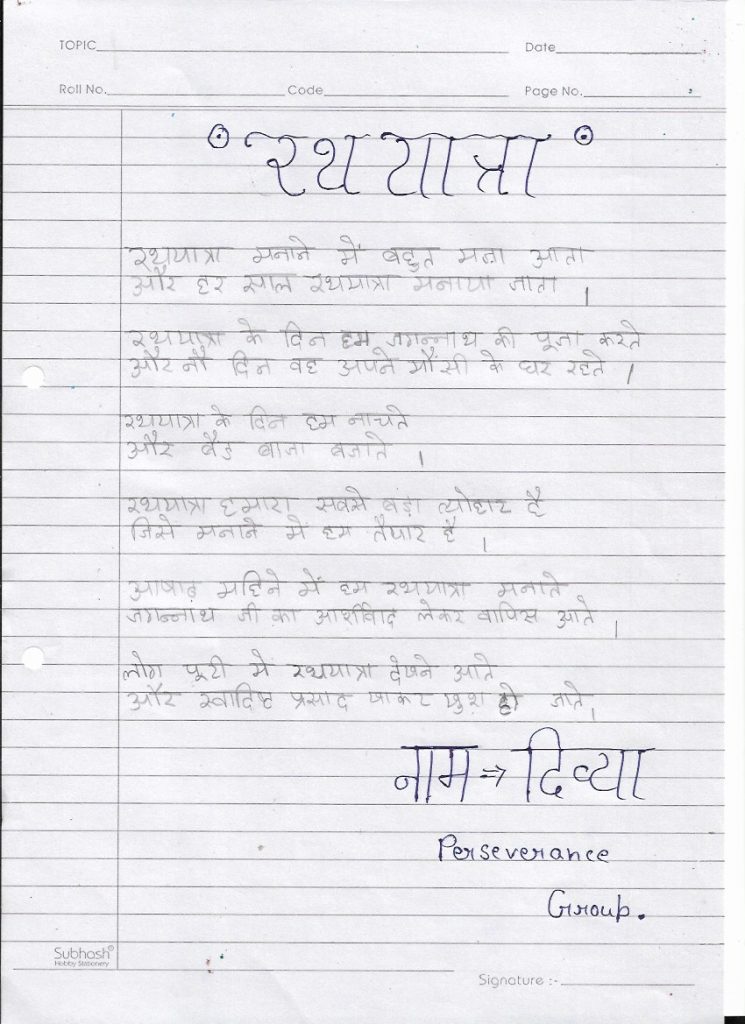 TOPIC Date
Roll No. Code Page No.
रथयात्रा
रथयात्रा मनाने में बहुत मजा आता
और हर साल रथयात्रा मनाया जाता ।
रथयात्रा के दिन हम जगन्नाथ की पूजा करते
और नौ दिन वह अपने मौसी के घर रहते ।
रथयात्रा के दिन हम नाचते
और बैंड बाजा बजाते ।
रथयात्रा हमारा सबसे बड़ा त्योहार है
जिसे मनाने में हम तैयार है ।
आषाढ़ महिने में हम रथयात्रा मनाते
जगन्नाथ जी का आर्शीवाद लेकर वापिस आते ।
लोग पूरी में रथयात्रा देखने आते
और स्वादिष्ट प्रसाद खाकर खुश हो जाते ।
नाम ⇒ दिव्या
Perseverance
Group.
Subhash
Hobby Stationery
Signature :-